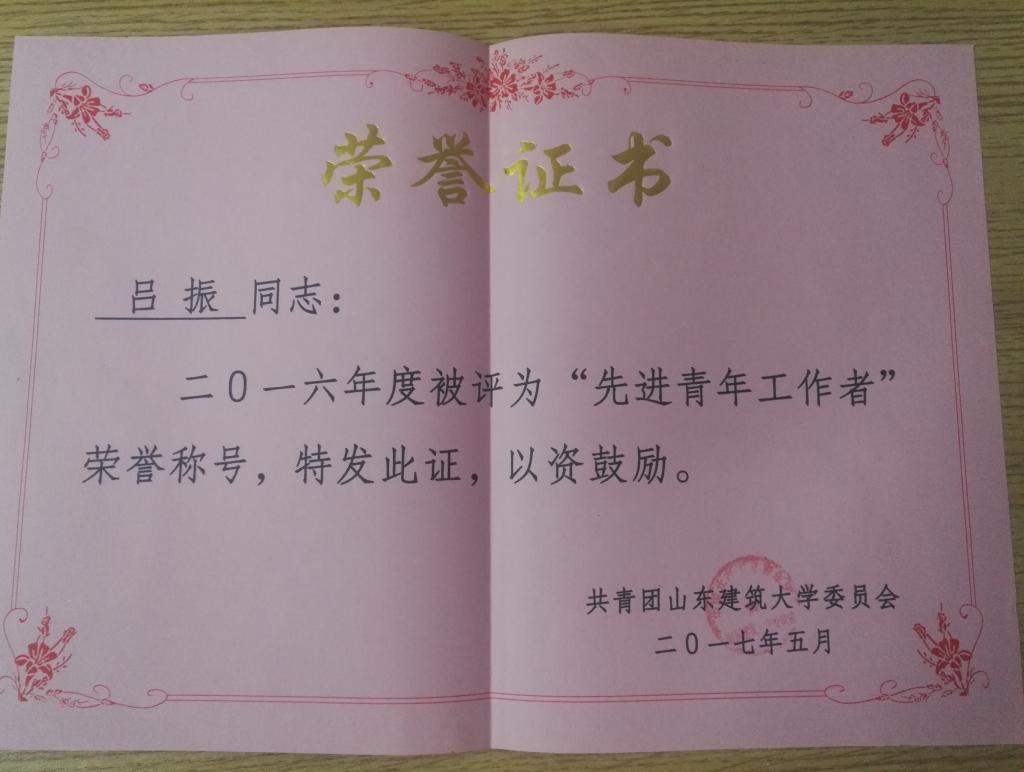 荣誉证书
吕振 同志：
二0一六年度被评为“先进青年工作者”
荣誉称号，特发此证，以资鼓励。
共青团山东建筑大学委员会
二0一七年五月